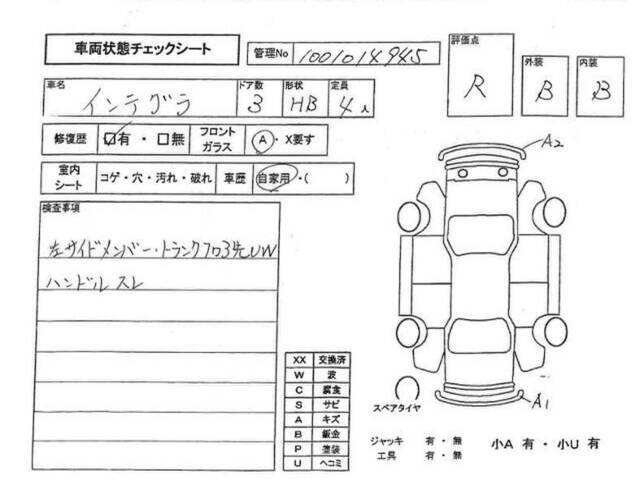 車両状態チェックシート
管理No 1001014945
評価点 R
外装 B
内装 B
車名 インテグラ
ドア数 3
形状 HB
定員 4人
修復歴 ☑有・☐無
フロントガラス A・X要す
室内シート コゲ・穴・汚れ・破れ
車歴 自家用・( )
検査事項
左サイドメンバー・トランクフロア先UW
ハンドルスレ
A2
A1
XX 交換済
W 波
C 腐食
S サビ
A キズ
B 鈑金
P 塗装
U ヘコミ
スペアタイヤ
ジャッキ 有・無
工具 有・無
小A 有・小U 有